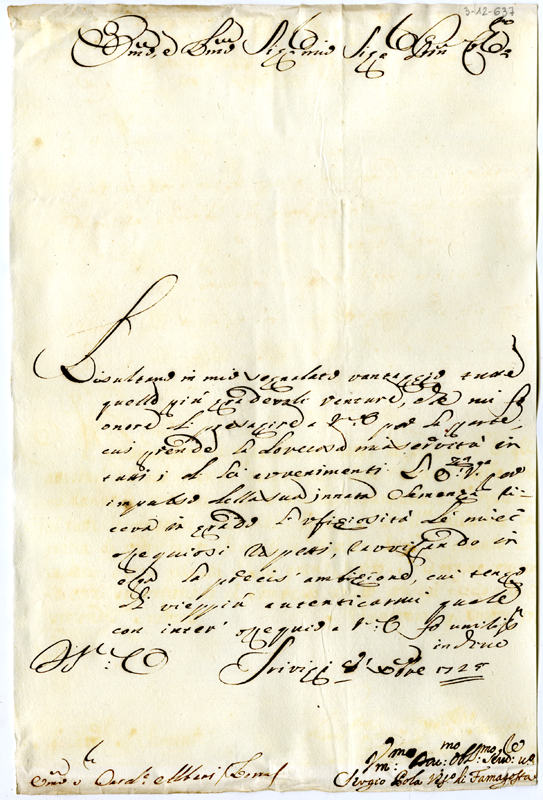 3-12-637
Em.º e Rmo Sig.r mio Sig.r Pron Col.mo
Risultano in mio segnalato vantaggio tutte
quelle più gradevoli venture, che mi fo
onore di presagire a V: E per la parte,
cui prende la doverosa mia servitù in
tutti i di Lei avvenimenti. L' E: V.ra per
impulso della sua innata Clemenza ri-
ceverà in grado l'ufficiosità de' miei
ossequiosi rispetti, ravvisando in
essa la precis' ambizione, cui tengo
di vieppiù autenticarmi quale
con inter' ossequio a V: E fo umiliss.º
inchino
Di V: E Trivigi Xbre 172
Em.º e Card.le Alberi
Sergio Pola Ves.º di Famagosta